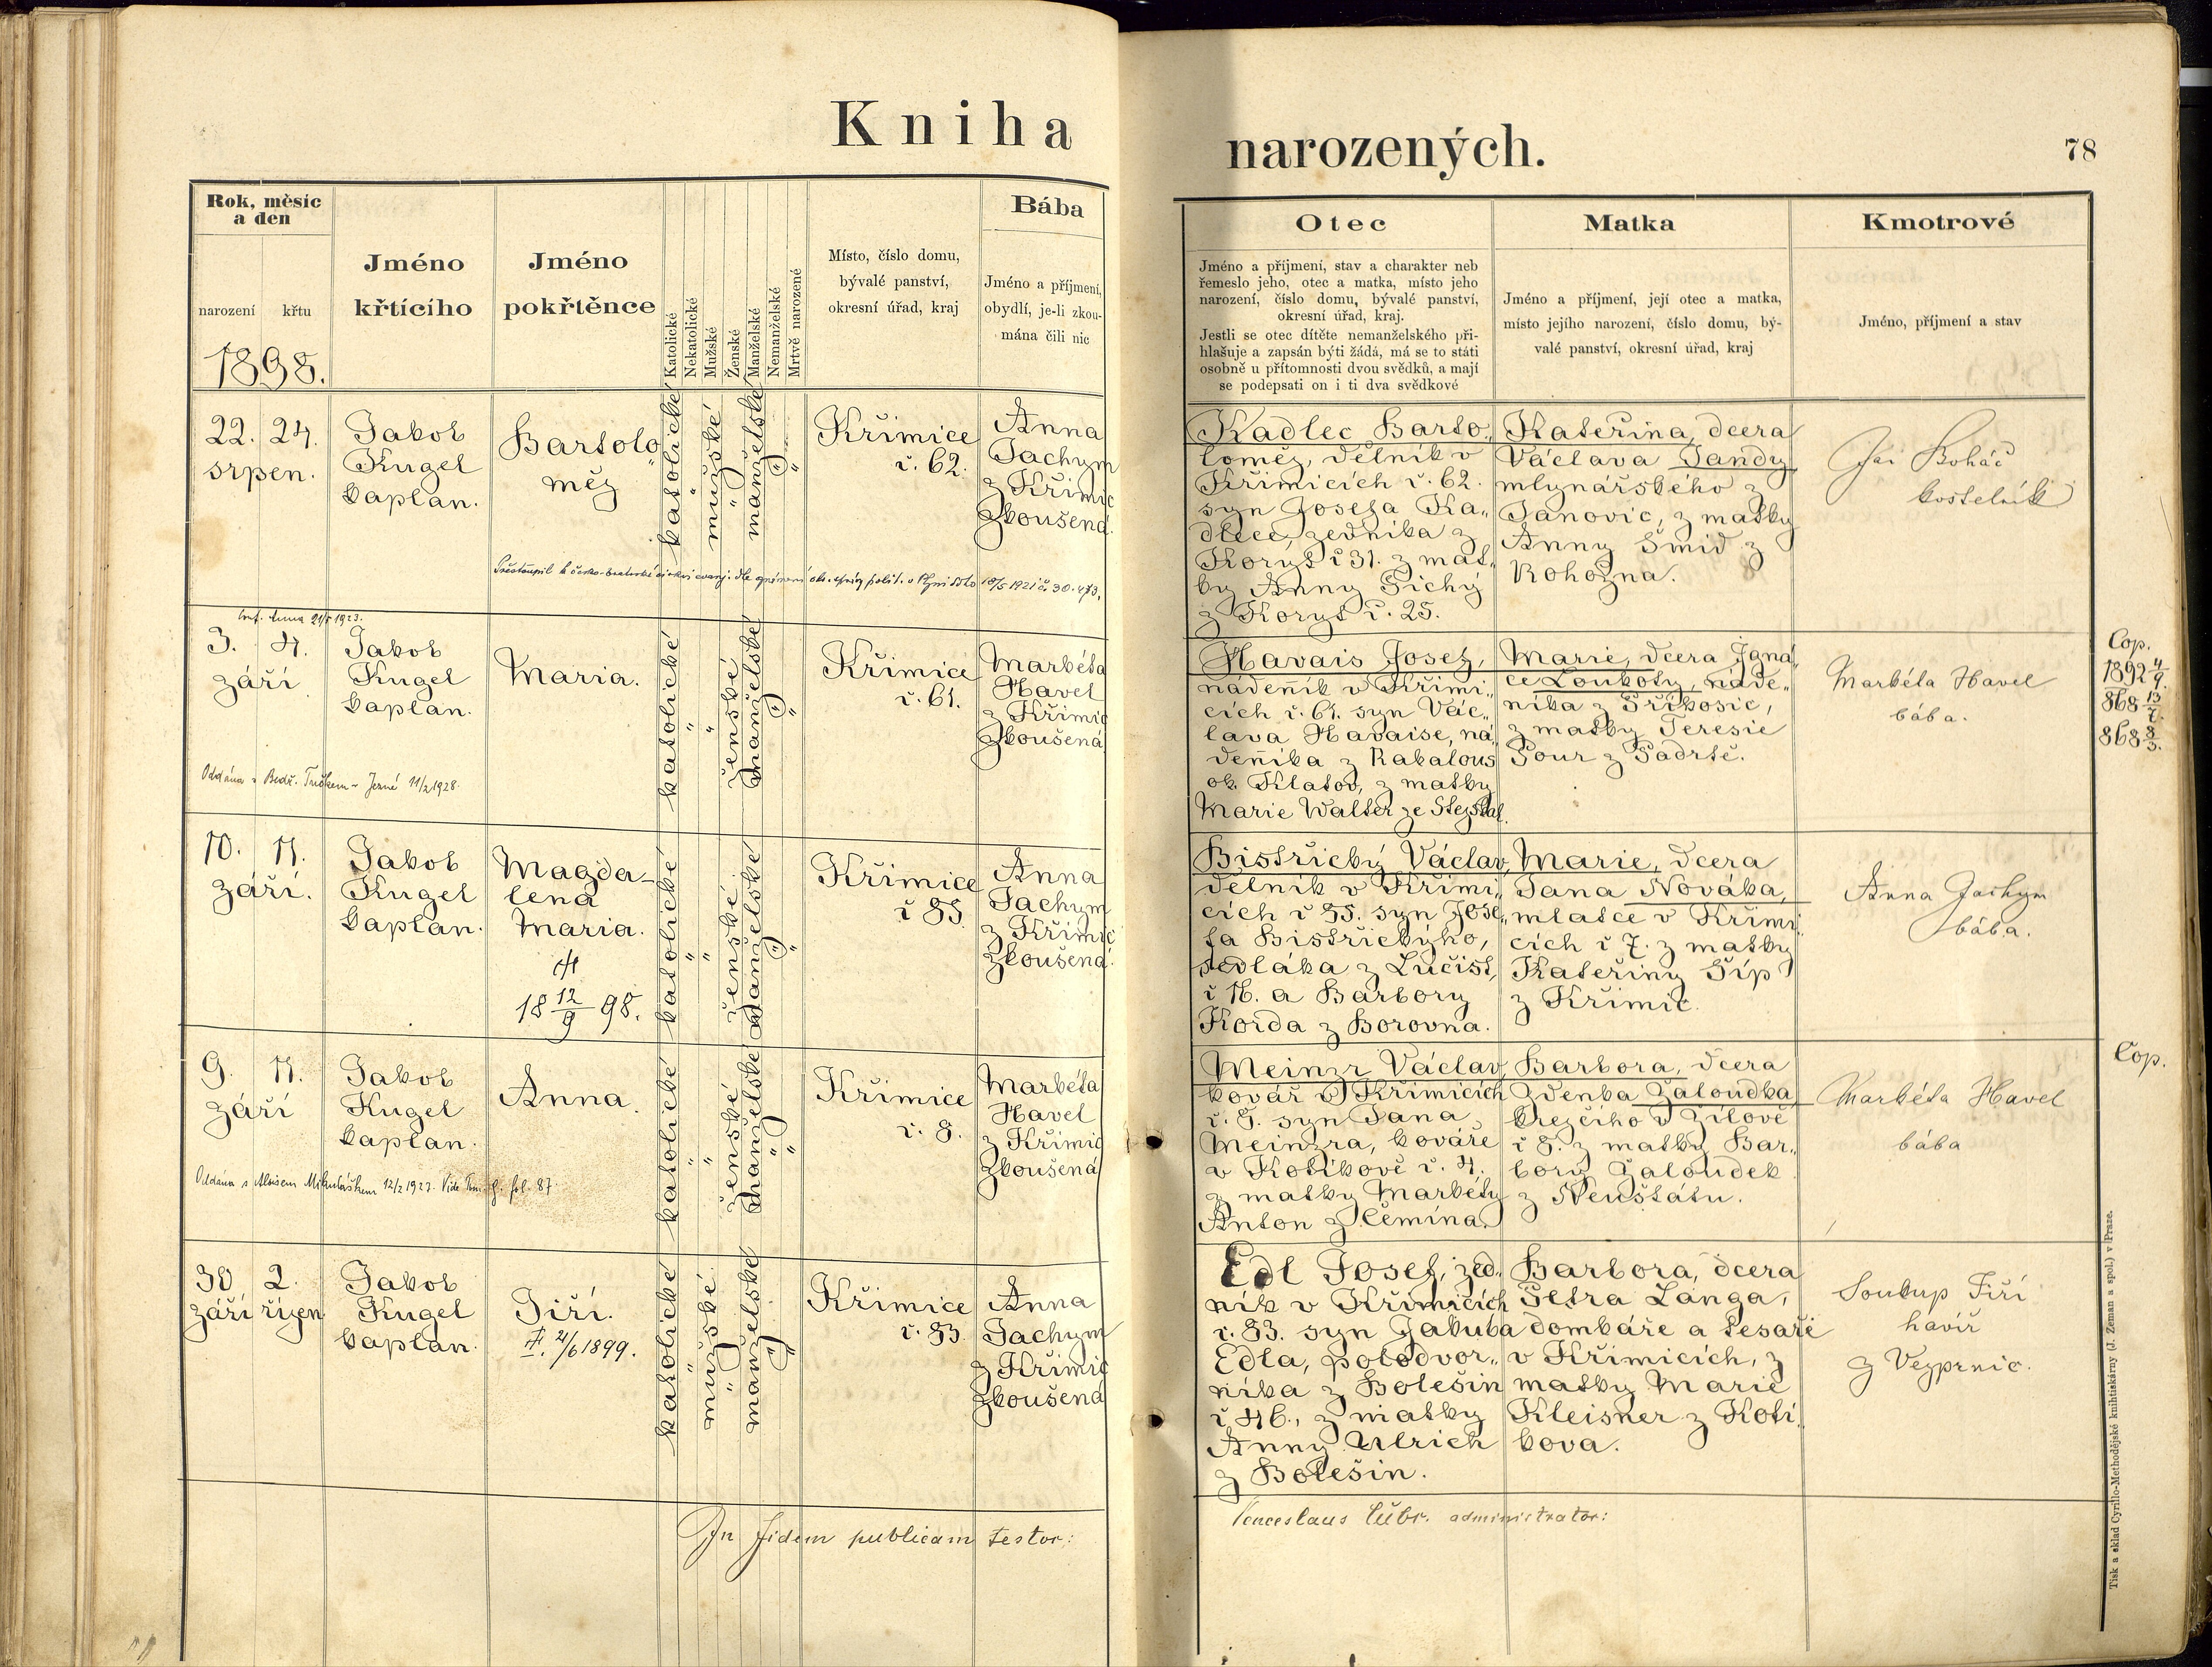 Kniha
narozených.
78
Rok, měsíc
a den
narození
křtu
1898.
Jméno
křtícího
Jméno
pokřtěnce
Katolické
Nekatolické
Mužské
Ženské
Manželské
Nemanželské
Mrtvě narozené
Místo, číslo domu,
bývalé panství,
okresní úřad, kraj
Bába
Jméno a příjmení,
obydlí, je-li zkou-
mána čili nic
Otec
Jméno a příjmení, stav a charakter neb
řemeslo jeho, otec a matka, místo jeho
narození, číslo domu, bývalé panství,
okresní úřad, kraj.
Jestli se otec dítěte nemanželského při-
hlašuje a zapsán býti žádá, má se to státi
osobně u přítomnosti dvou svědků, a mají
se podepsati on i ti dva svědkové
Matka
Jméno a příjmení, její otec a matka,
místo jejího narození, číslo domu, bý-
valé panství, okresní úřad, kraj
Kmotrové
Jméno, příjmení a stav
22. 24.
srpen.
Jakob
Kugel
kaplan.
Bartolo„
měj
katolické
"
mužské
"
manželské
"
"
Křimice
č. 62.
Anna
Jachym
z Křimic
zkoušená.
Kadlec Barto„
loměj, dělník v
Křimicích č. 62.
syn Josefa Ka„
dlece, zedníka z
Koryt č 31. z mat„
ky Anny Tichý
z Koryt č. 25.
Kateřina, dcera
Václava Jandy
mlynářského z
Janovic, z matky
Anny Šmid z
Rohozna.
Jan Boháč
kostelník
Přestoupil k česko-bratrské církvi evang. dle oznámení okr. správy polit. v Plzni dto 10/5 1921 č. 30.473.
3. 4.
září
Jakob
Kugel
kaplan.
Maria.
katolické
"
"
ženské
manželské
"
"
Křimice
č. 61.
Markéta
Havel
z Křimic
zkoušená
Havais Josef,
nádenník v Křimi„
cích č. 61. syn Vác„
lava Havaise, ná„
denníka z Rabalous
ok. Klatov, z matky
Marie Walter ze
Marie, dcera Igná„
ce Loukoty, náde„
níka z Přikosic,
z matky Teresie
Pour z Padrtě.
Markéta Havel
bába.
Cop.
1892 4/9.
868 13/7.
868 8/3.
Oddána s Bedř. Tučkem v Jezné 11/2 1928.
10. 11.
září.
Jakob
Kugel
kaplan.
Magda-
lena
Maria.
18 12/9 98.
katolické
"
"
ženské
manželské
"
"
Křimice
č 85
Anna
Jachym
z Křimic
zkoušená.
Bistřický Václav,
dělník v Křimi„
cích č 85. syn Jose„
fa Bistřickýho,
sedláka z Lučišt,
č 16. a Barbory
Korda z Borovna.
Marie, dcera
Jana Nováka,
mlatce v Křimi„
cích č 7. z matky
Kateřiny Šíp
z Křimic.
Anna Jachym
bába.
9. 11.
září
Jakob
Kugel
kaplan.
Anna.
katolické
"
"
ženské
manželské
"
"
Křimice
č. 8.
Markéta
Havel
z Křimic
zkoušená
Meinzr Václav,
kovář v Křimicích
č. 8. syn Jana
Meinzra, kováře
v Kotíkově č. 4.
z matky Markéty
Anton z Čemína.
Barbora, dcera
Zdenka Žaloudka
krejčího v Žilově
č 8. z matky Bar„
bory Žaloudek
z Neuštátu.
Markéta Havel
bába
Cop.
Oddána s Aloisem Mikulášikem 12/2 1922. Vide Tom. fol. 87
30 2.
září říjen
Jakob
Kugel
kaplan.
Jiří.
†. 21/6 1899.
katolické
"
mužské
"
manželské
"
"
Křimice
č. 83.
Anna
Jachym
z Křimic
zkoušená
Edl Josef, zed„
ník v Křimicích
č. 83. syn Jakuba
Edla, polodvor„
níka z Bolešin
č 46., z matky
Anny Ulrich
z Bolešin.
Barbora, dcera
Petra Langa,
domkáře a tesaře
v Křimicích, z
matky Marie
Kleisner z Kotí„
kova.
Soukup Jiří
havíř
z Vejprnic.
In fidem publicam testor:
Venceslaus administrator:
Tisk a sklad Cyrillo-Methodějské knihtiskárny (J. Zeman a spol.) v Praze.